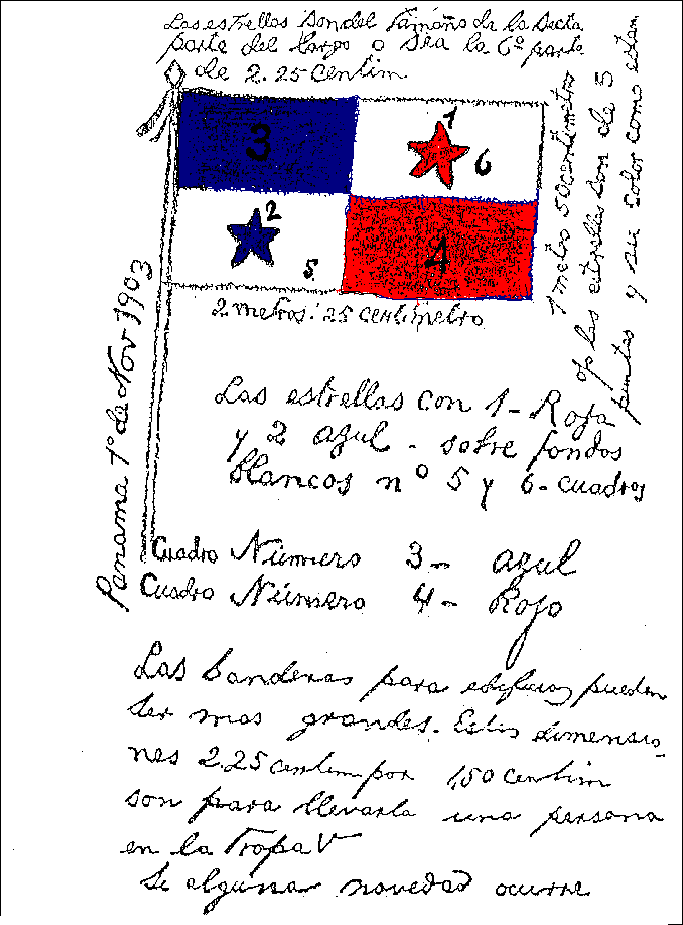 Las estrellas son del Tamaño de la Secta
parte del largo o sea la 6ª parte
de 2.25 Centim
3
1
6
2
5
4
2 metros: 25 centimetro
1 metro 50 centimetro
las estrellas son de 5
puntas y su color como estan
Panama 1° de Nov 1903
Las estrellas con 1 - Roja
y 2 azul - sobre fondos
blancos nº 5 y 6 - cuadros
Cuadro Número 3 - azul
Cuadro Número 4 - Rojo
Las banderas para edificios pueden
ser mas grandes. Estas dimensio-
nes 2.25 centim por 1,50 centim
son para llevarla una persona
en la Tropa V
Si alguna novedad ocurre